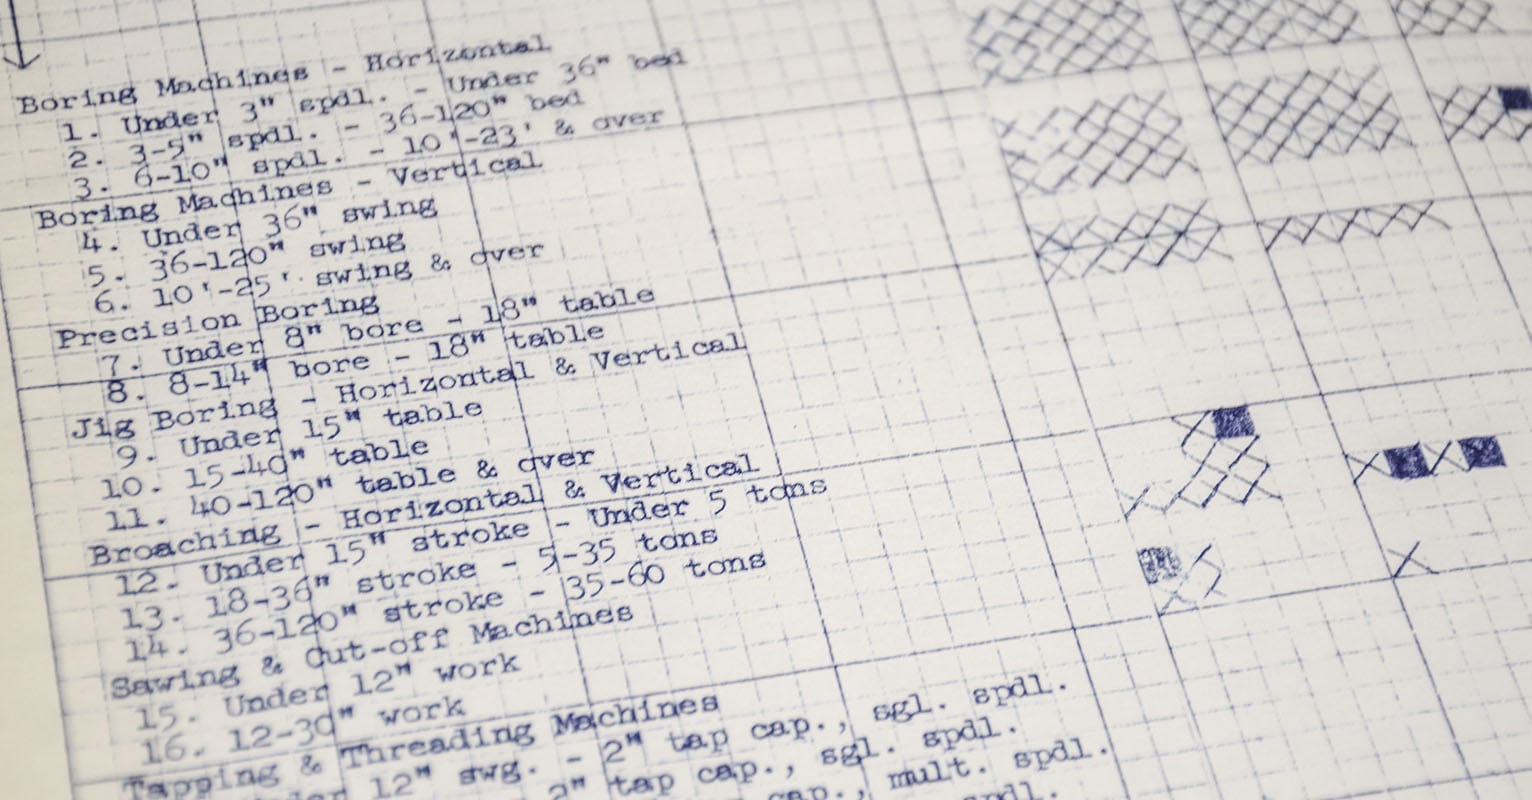 Boring Machines - Horizontal
1. Under 3" spdl. - Under 36" bed
2. 3-5" spdl. - 36-120" bed
3. 6-10" spdl. - 10'-23' & over
Boring Machines - Vertical
4. Under 36" swing
5. 36-120" swing
6. 10'-25'. swing & over
Precision Boring
7. Under 8" bore - 18" table
8. 8-14" bore - 18" table
Jig Boring - Horizontal & Vertical
9. Under 15" table
10. 15-40" table
11. 40-120" table & over
Broaching - Horizontal & Vertical
12. Under 15" stroke - Under 5 tons
13. 18-36" stroke - 5-35 tons
14. 36-120" stroke - 35-60 tons
Sawing & Cut-off Machines
15. Under 12" work
16. 12-30" work
Tapping & Threading Machines
12" swg. - 2" tap cap., sgl. spdl.
2" tap cap., sgl. spdl.
cap., mult. spdl.
spdl.